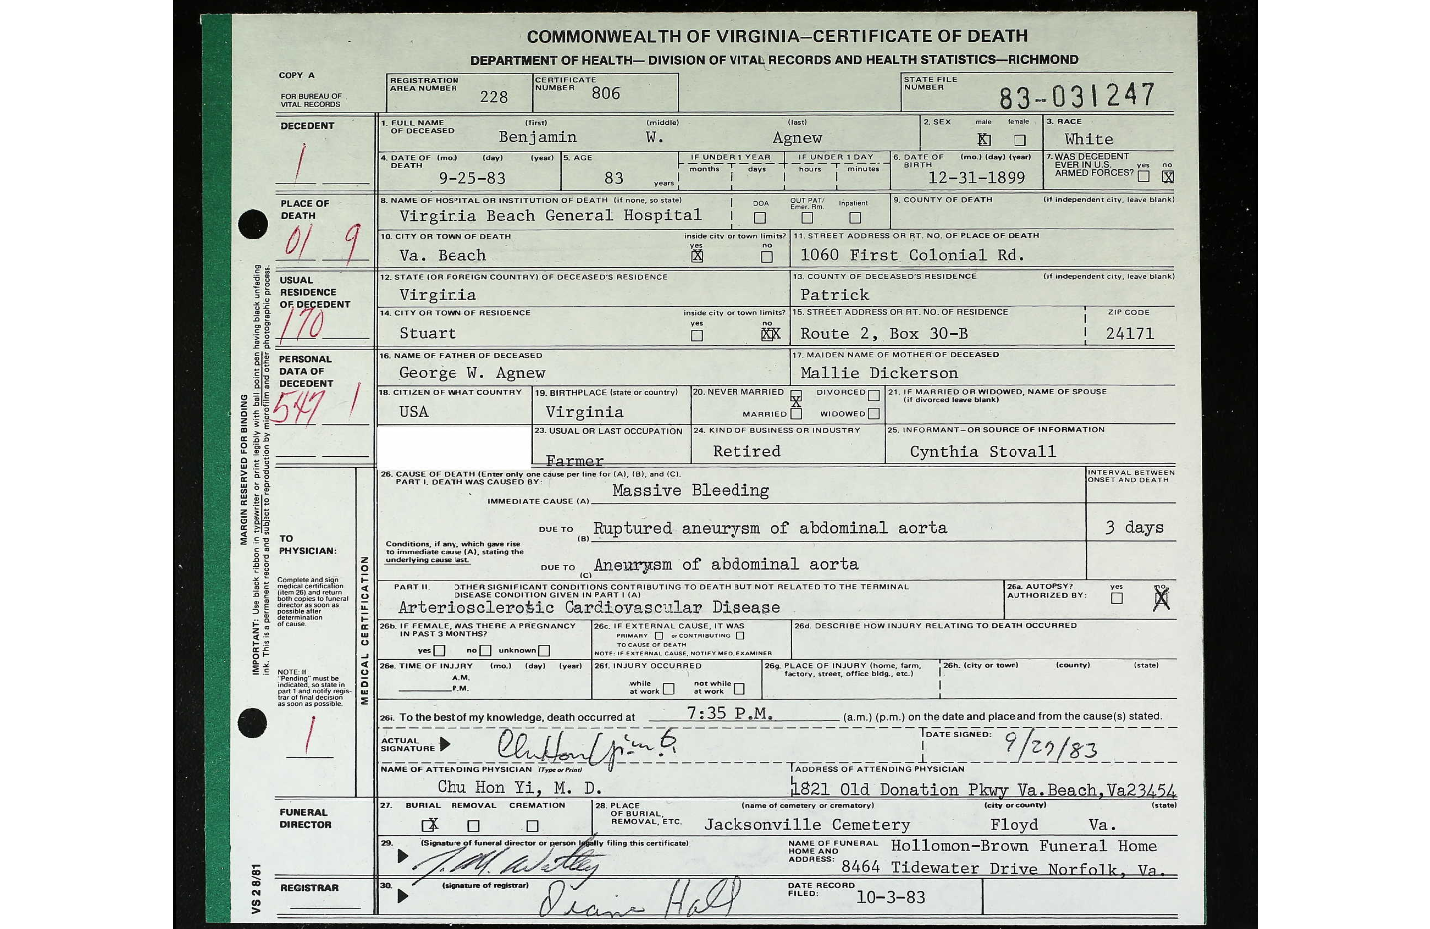 COMMONWEALTH OF VIRGINIA—CERTIFICATE OF DEATH
DEPARTMENT OF HEALTH— DIVISION OF VITAL RECORDS AND HEALTH STATISTICS—RICHMOND
COPY A
FOR BUREAU OF VITAL RECORDS
REGISTRATION AREA NUMBER 228
CERTIFICATE NUMBER 806
STATE FILE NUMBER 83-031247
DECEDENT
1
1. FULL NAME OF DECEASED (first) (middle) (last)
Benjamin W. Agnew
2. SEX male female
X
3. RACE
White
4. DATE OF DEATH (mo.) (day) (year)
9-25-83
5. AGE
83 years
IF UNDER 1 YEAR months days
IF UNDER 1 DAY hours minutes
6. DATE OF BIRTH (mo.) (day) (year)
12-31-1899
7. WAS DECEDENT EVER IN U.S. ARMED FORCES? yes no
X
PLACE OF DEATH
01 9
8. NAME OF HOSPITAL OR INSTITUTION OF DEATH (if none, so state)
Virginia Beach General Hospital
DOA OUT PAT/ Emer. Rm. Inpatient
9. COUNTY OF DEATH (if independent city, leave blank)
10. CITY OR TOWN OF DEATH inside city or town limits? yes no
Va. Beach X
11. STREET ADDRESS OR RT. NO. OF PLACE OF DEATH
1060 First Colonial Rd.
USUAL RESIDENCE OF DECEDENT
170
12. STATE (OR FOREIGN COUNTRY) OF DECEASED'S RESIDENCE
Virginia
13. COUNTY OF DECEASED'S RESIDENCE (if independent city, leave blank)
Patrick
14. CITY OR TOWN OF RESIDENCE inside city or town limits? yes no
Stuart XX
15. STREET ADDRESS OR RT. NO. OF RESIDENCE ZIP CODE
Route 2, Box 30-B 24171
PERSONAL DATA OF DECEDENT
547 1
16. NAME OF FATHER OF DECEASED
George W. Agnew
17. MAIDEN NAME OF MOTHER OF DECEASED
Mallie Dickerson
18. CITIZEN OF WHAT COUNTRY
USA
19. BIRTHPLACE (state or country)
Virginia
20. NEVER MARRIED X DIVORCED
MARRIED WIDOWED
21. IF MARRIED OR WIDOWED, NAME OF SPOUSE
(if divorced leave blank)
23. USUAL OR LAST OCCUPATION
Farmer
24. KIND OF BUSINESS OR INDUSTRY
Retired
25. INFORMANT—OR SOURCE OF INFORMATION
Cynthia Stovall
MARGIN RESERVED FOR BINDING
IMPORTANT: Use black ribbon in typewriter or print legibly with ball point pen having black unfading
ink. This is a permanent record and subject to reproduction by microfilm and other photographic process.
VS 2 8/81
TO PHYSICIAN:
Complete and sign medical certification (item 26) and return both copies to funeral director as soon as possible after determination of cause.
NOTE: If "Pending" must be indicated, so state in part 1 and notify registrar of final decision as soon as possible.
1
MEDICAL CERTIFICATION
26. CAUSE OF DEATH (Enter only one cause per line for (A), (B), and (C).
PART I. DEATH WAS CAUSED BY:
INTERVAL BETWEEN ONSET AND DEATH
IMMEDIATE CAUSE (A) Massive Bleeding
DUE TO (B) Ruptured aneurysm of abdominal aorta 3 days
Conditions, if any, which gave rise to immediate cause (A), stating the underlying cause last.
DUE TO (C) Aneurysm of abdominal aorta
PART II OTHER SIGNIFICANT CONDITIONS CONTRIBUTING TO DEATH BUT NOT RELATED TO THE TERMINAL
DISEASE CONDITION GIVEN IN PART I (A)
Arteriosclerotic Cardiovascular Disease
26a. AUTOPSY? AUTHORIZED BY: yes no
X
26b. IF FEMALE, WAS THERE A PREGNANCY IN PAST 3 MONTHS?
yes no unknown
26c. IF EXTERNAL CAUSE, IT WAS
PRIMARY or CONTRIBUTING
TO CAUSE OF DEATH
NOTE: IF EXTERNAL CAUSE, NOTIFY MED. EXAMINER
26d. DESCRIBE HOW INJURY RELATING TO DEATH OCCURRED
26e. TIME OF INJURY (mo.) (day) (year)
A.M.
P.M.
26f. INJURY OCCURRED
while at work not while at work
26g. PLACE OF INJURY (home, farm, factory, street, office bldg., etc.)
26h. (city or town) (county) (state)
26i. To the best of my knowledge, death occurred at 7:35 P.M. (a.m.) (p.m.) on the date and place and from the cause(s) stated.
ACTUAL SIGNATURE
DATE SIGNED: 9/27/83
NAME OF ATTENDING PHYSICIAN (Type or Print)
Chu Hon Yi, M. D.
ADDRESS OF ATTENDING PHYSICIAN
1821 Old Donation Pkwy Va.Beach,Va23454
FUNERAL DIRECTOR
27. BURIAL REMOVAL CREMATION
X
28. PLACE OF BURIAL, REMOVAL, ETC. (name of cemetery or crematory) (city or county) (state)
Jacksonville Cemetery Floyd Va.
29. (Signature of funeral director or person legally filing this certificate)
NAME OF FUNERAL HOME AND ADDRESS: Hollomon-Brown Funeral Home
8464 Tidewater Drive Norfolk, Va.
REGISTRAR
30. (signature of registrar)
Diane Hall
DATE RECORD FILED: 10-3-83